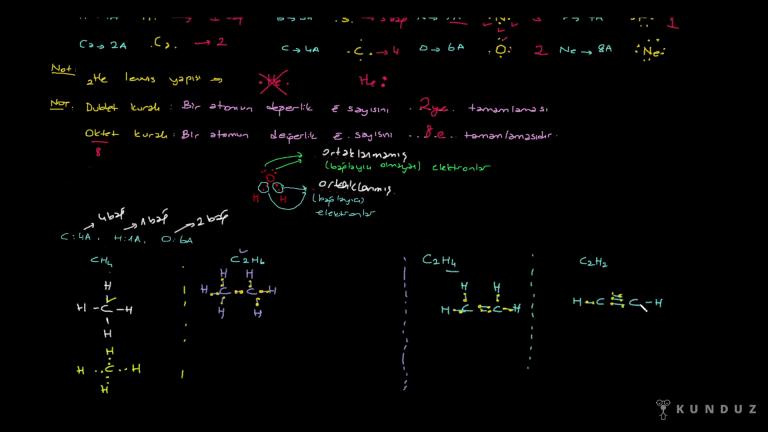 Ca → 2A .Ca. → 2 C → 4A .C. → 4 O → 6A O 2 Ne → 8A Ne
Not: ₂He lewis yapısı → He He:
Not: Dublet kuralı: Bir atomun değerlik e⁻ sayısını 2'ye tamamlaması
Oktet kuralı: Bir atomun değerlik e⁻ sayısını ..8.e.. tamamlamasıdır.
8
ortaklanmamış
(bağlayıcı olmayan) elektronlar
O
ortaklanmış
H H (bağlayıcı)
elektronlar
4 bağ 1 bağ 2 bağ
C:4A, H:1A, O:6A
CH₄ C₂H₆ C₂H₄ C₂H₂
H H H H H
H - C - H H C C H H C C H H - C ≡ C - H
H H H
H
H C H
H
KUNDUZ